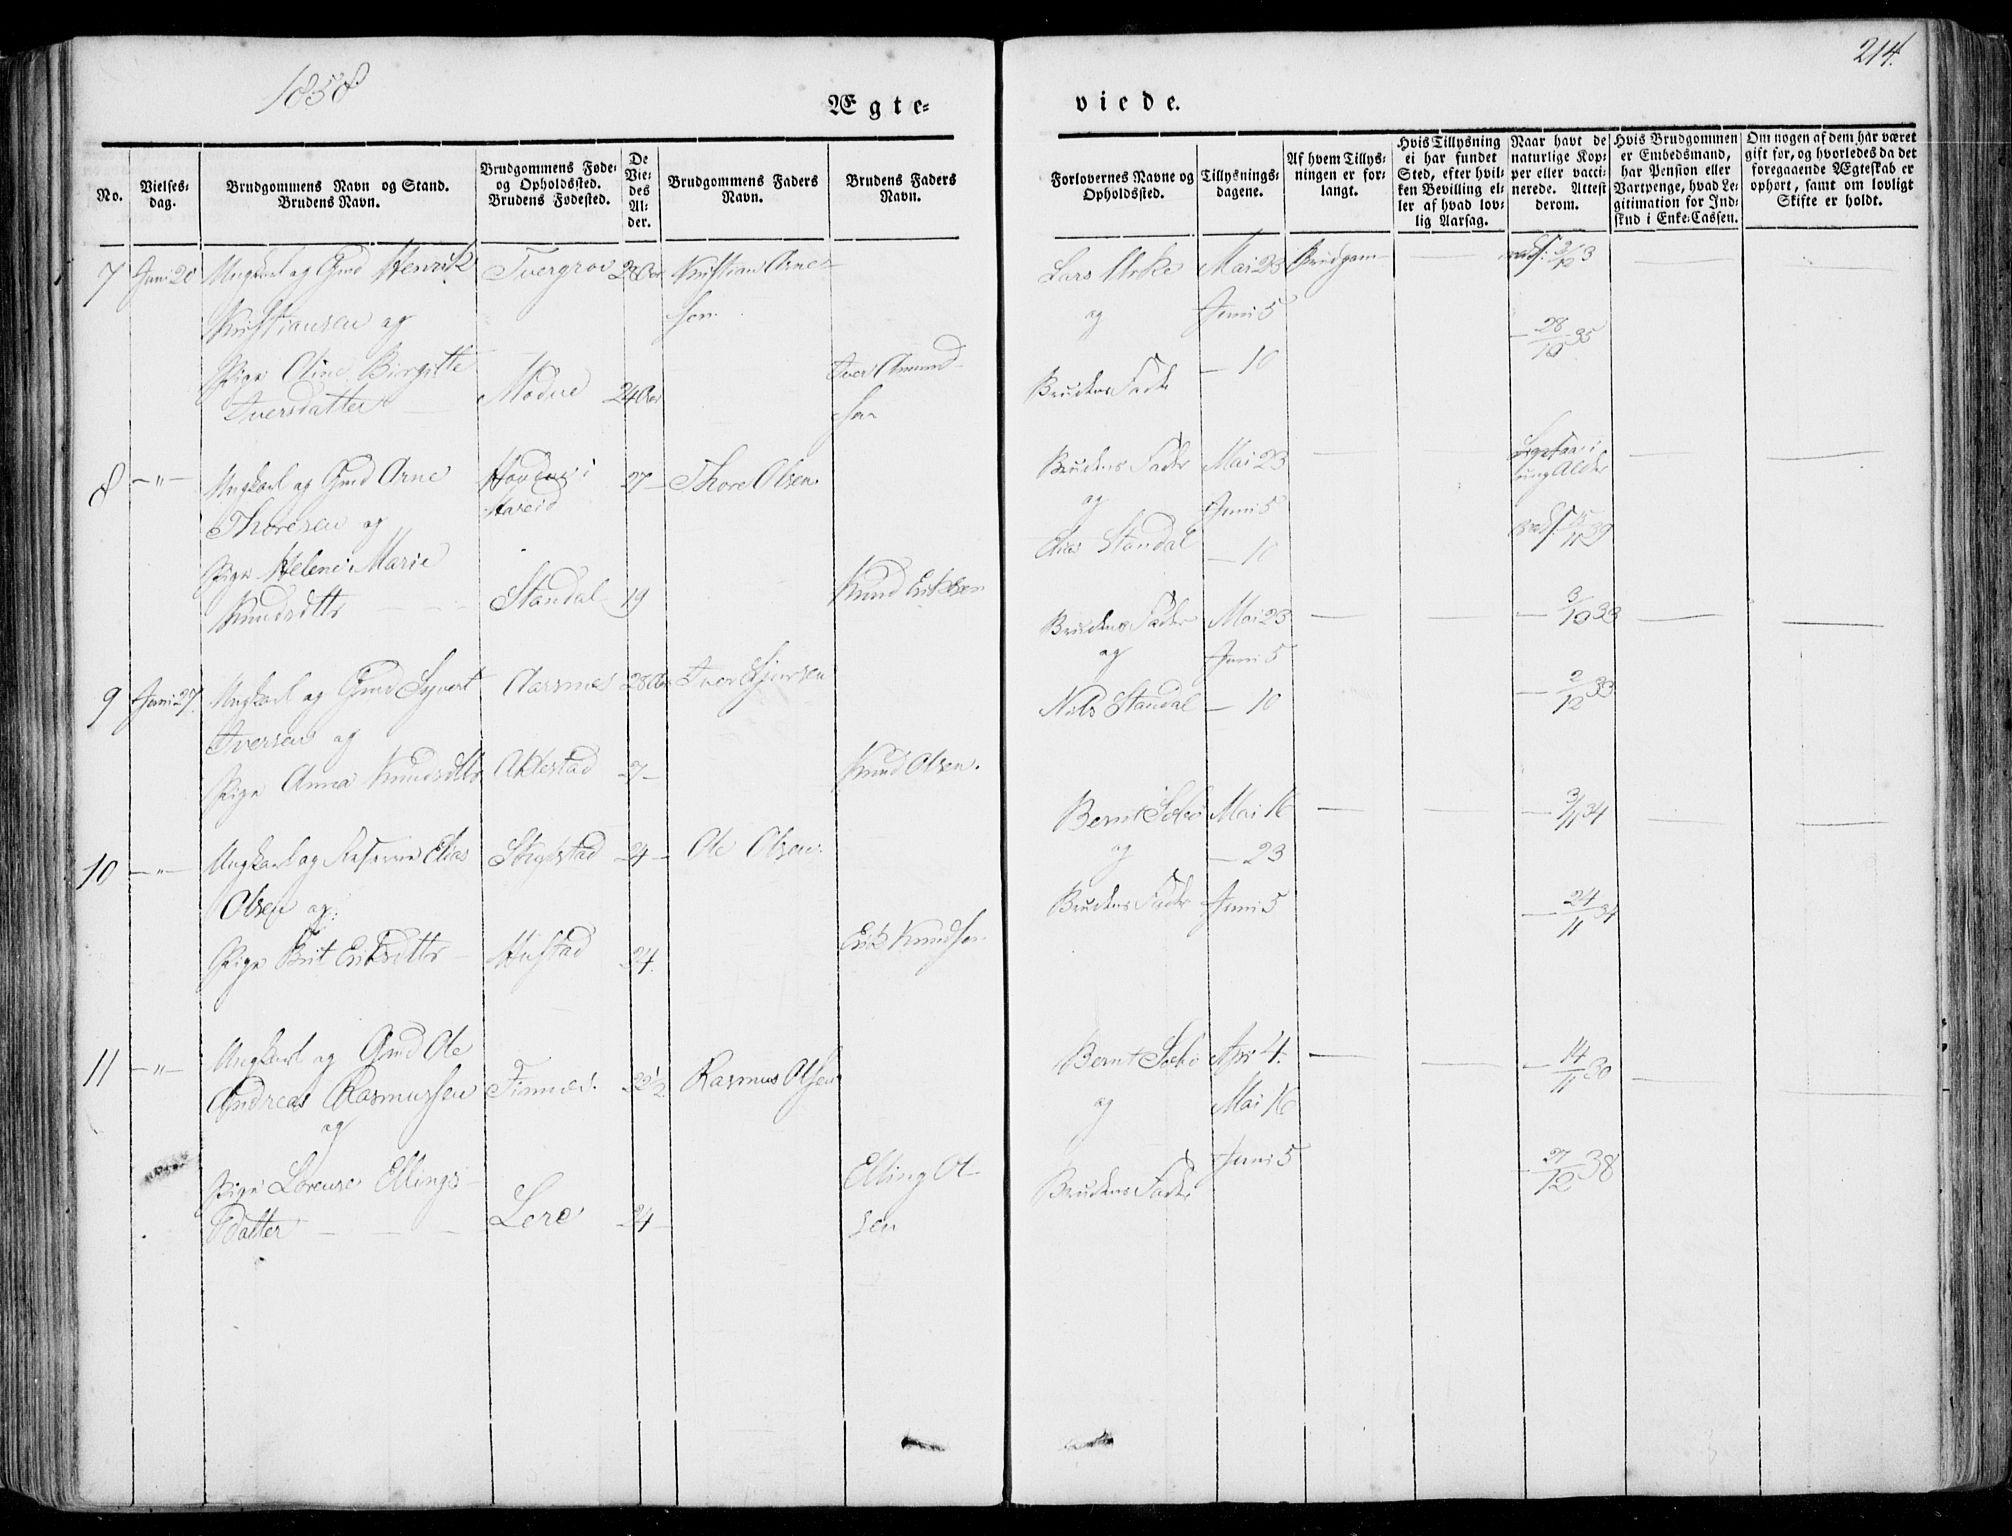 1858
214.
Ægte-
viede.
No.
Vielses-
dag.
Brudgommens Navn og Stand.
Brudens Navn.
Brudgommens Føde-
og Opholdssted.
Brudens Fødested.
De
Vie-
des
Al-
der.
Brudgommens Faders
Navn.
Brudens Faders
Navn.
Forlovernes Navne og
Opholdssted.
Tillysnings-
dagene.
Af hvem Tillys-
ningen er for-
langt.
Hvis Tillysning
ei har fundet
Sted, efter hvil-
ken Bevilling el-
ler af hvad lov-
lig Aarsag.
Naar havt de
naturlige Kop-
per eller vacci-
nerede. Attest
derom.
Hvis Brudgommen
er Embedsmand,
har Pension eller
Vartpenge, hvad Le-
gitimation for Ind-
skud i Enke-Cassen.
Om nogen af dem har været
gift før, og hvorledes da det
foregaaende Ægteskab er
ophørt, samt om lovligt
Skifte er holdt.
7 Juni 20 Ungkarl og Gmd Henrik
Kristiansen og
Pige Oline Birgitte
Iversdatter
Tvergrov
Modue
28 Aar
24 Aar
Kristian Arne-
sen
Iver Amund-
sen
Lars Urke
og
Brudens Fader
Mai 23
Juni 5
— 10
Brudgom
3/12 3
28/10 35
8 —"— Ungkarl og Gmd Arne
Thoresen og
Pige Helene Marie
Knudsdttr
i
Hareid
Standal
27 —
19
Thore Olsen.
Knud Eriksen
Brudens Fader
og
Elias Standal
Mai 23
Juni 5
— 10
ung Alder
39
9 Juni 27. Ungkarl og Gmd Syvert
Iversen og
Pige Anna Knudsdttr
Aarsnes
Aklestad
28 Aar
27 —
Iver
Knud Olsen.
Brudens Fader
og
Nils Standal
Mai 23
Juni 5
— 10
3/10 33
2/12 33
10 —"— Ungkarl og Elias
Olsen og
Pige Brit Eriksdttr
Hustad
24 —
24.
Ole Olsen.
Erik Knudsen
Bernt Sæbø
og
Brudens Fader
Mai 16
— 23
Juni 5
3/11 34
24/11 34
11 —"— Ungkarl og Gmd Ole
Andreas Rasmussen
og
Pige Lorense Ellings-
datter
Finnes.
Lere
24 —
Rasmus Olsen
Elling Ol-
sen
Bernt Sæbø
og
Brudens Fader
Apr 4.
Mai 16
Juni 5
14/11 30
27/12 38